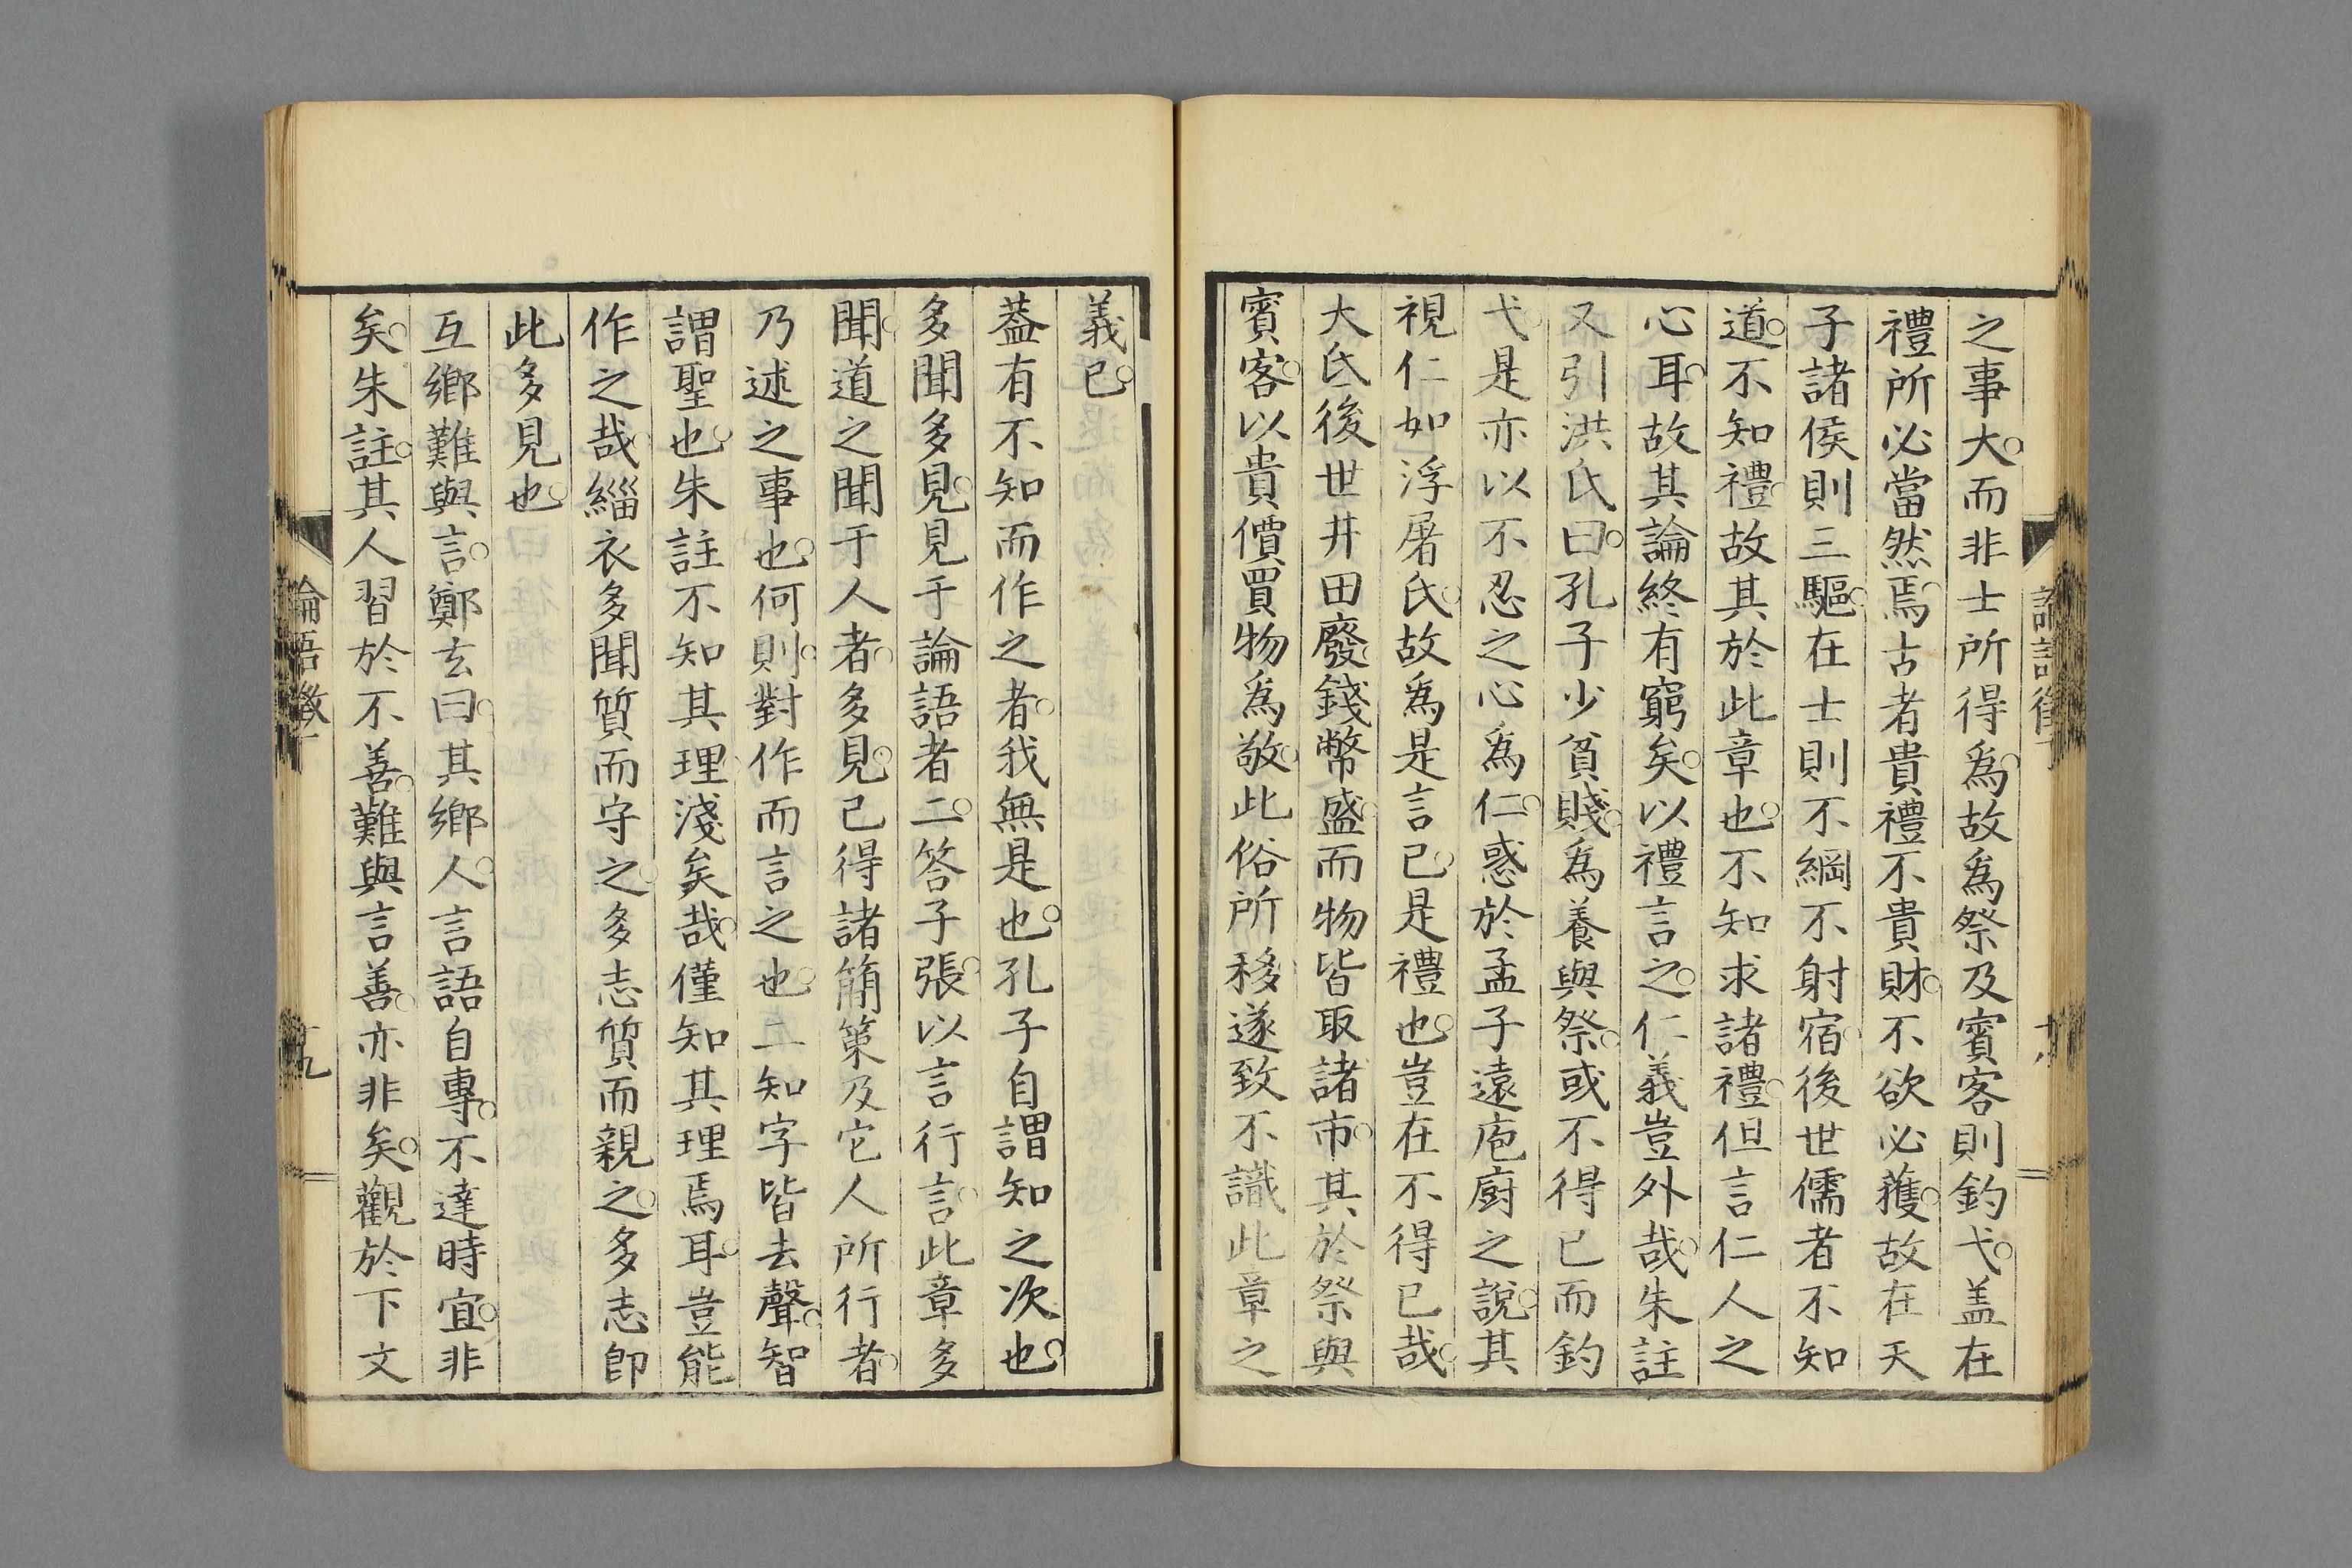 之事大而非士所得爲故爲祭及賓客則釣弋盖在
禮所必當然焉古者貴禮不貴財不欲必獲故在天
子諸侯則三驅在士則不綱不射宿後世儒者不知
道不知禮故其於此章也不知求諸禮但言仁人之
心耳故其論終有窮矣以禮言之仁義豈外哉朱註
又引洪氏曰孔子少貧賤爲養與祭或不得已而釣
弋是亦以不忍之心爲仁惑於孟子遠庖廚之說其
視仁如浮屠氏故爲是言已是禮也豈在不得已哉
大氐後世井田廢錢幣盛而物皆取諸市其於祭與
賓客以貴價買物爲敬此俗所移遂致不識此章之
義已
葢有不知而作之者我無是也孔子自謂知之次也
多聞多見見于論語者二答子張以言行言此章多
聞道之聞于人者多見己得諸簡策及它人所行者
乃述之事也何則對作而言之也二知字皆去聲智
謂聖也朱註不知其理淺矣哉僅知其理焉耳豈能
作之哉緇衣多聞質而守之多志質而親之多志卽
此多見也
互鄉難與言鄭玄曰其鄉人言語自專不達時宜非
矣朱註其人習於不善難與言善亦非矣觀於下文
論語徵丁
十九